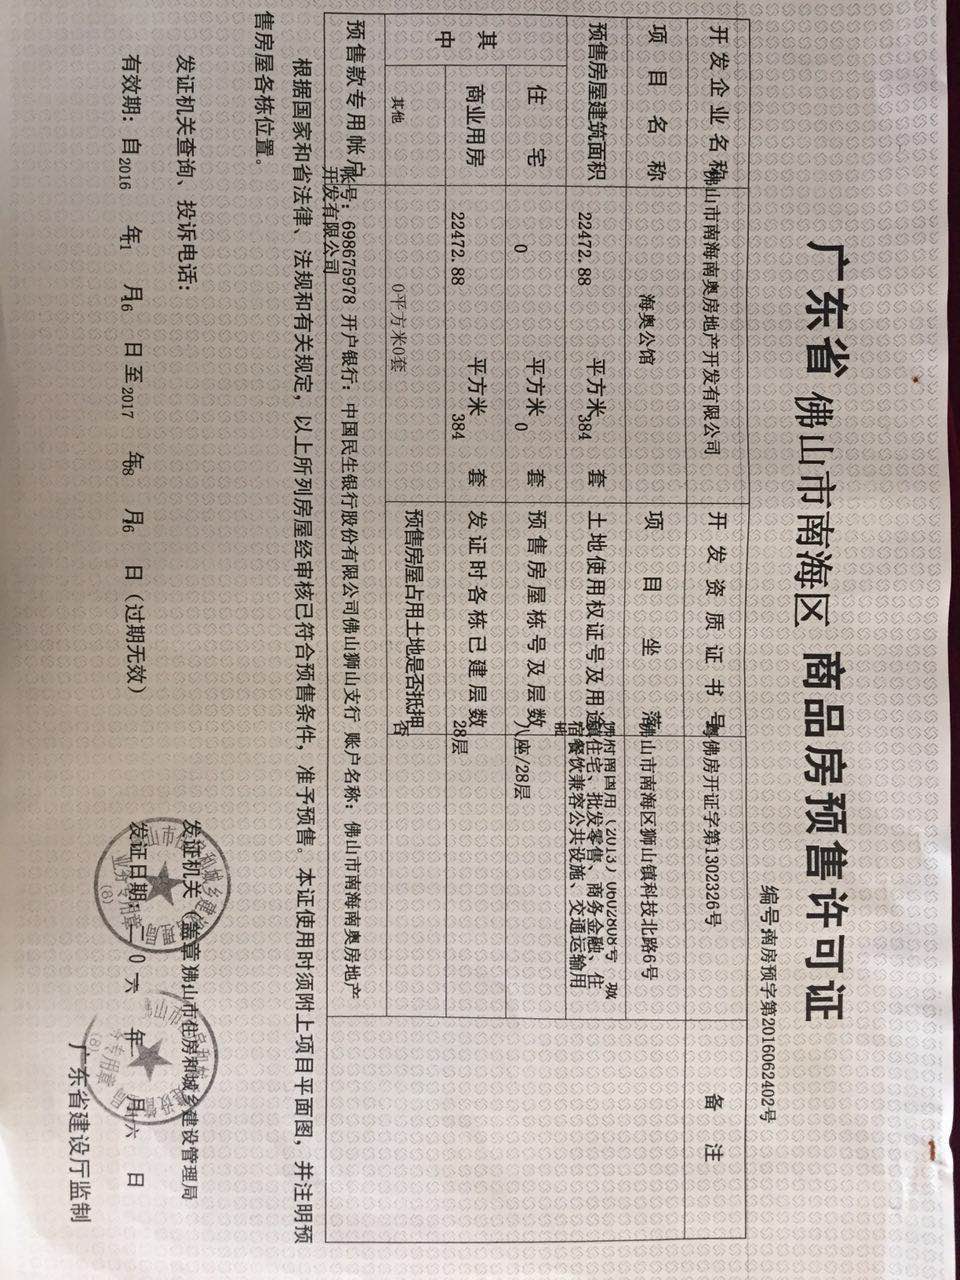 广东省 佛山市南海区 商品房预售许可证
编号:南房预字第2016062402号
开发企业名称 佛山市南海南奥房地产开发有限公司 开发资质证书号 粤佛房开证字第1302326号 备注
项目名称 海奥公馆 项目坐落 佛山市南海区狮山镇科技北路6号
预售房屋建筑面积 22472.88 平方米 384 套 土地使用权证号及用途 佛府南国用（2013）0602808号 城
镇住宅、批发零售、商务金融、住
宿餐饮兼容公共设施、交通运输用
其中 住宅 0 平方米 0 套 预售房屋栋号及层数 八座/28层
商业用房 22472.88 平方米 384 套 发证时各栋已建层数 28层
其他 0平方米0套 预售房屋占用土地是否抵押 否
预售款专用帐户 账号：698675978 开户银行：中国民生银行股份有限公司佛山狮山支行 账户名称：佛山市南海南奥房地产
开发有限公司
根据国家和省法律、法规和有关规定，以上所列房屋经审核已符合预售条件，准予预售。本证使用时须附上项目平面图，并注明预
售房屋各栋位置。
发证机关查询、投诉电话： 发证机关（盖章）佛山市住房和城乡建设管理局
有效期：自2016 年1 月16 日至2017 年08 月16 日（过期无效） 发证日期：二0一六 年 月十六 日
广东省建设厅监制
业务专用章
(8)